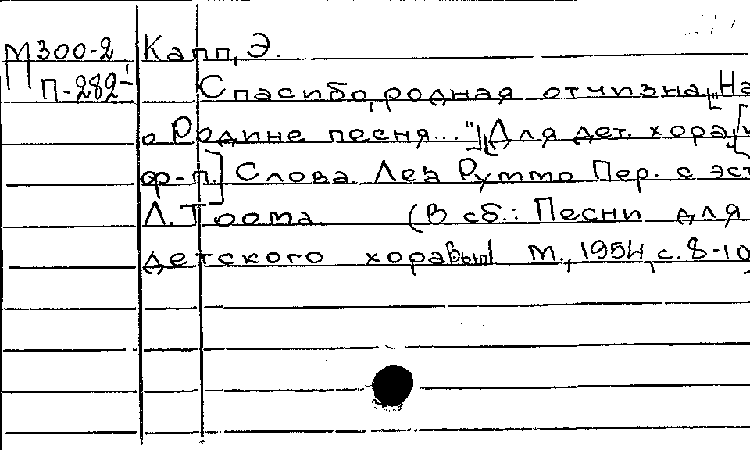 М300-2 Капп, Э.
П-282 Спасибо, родная отчизна! ["На
о Родине песня..."] [Для дет. хора
ф-п.] Слова Пер. с эст.
Л. Тоома (В сб.: Песни для
детского хора. Вып. 1 М., 1954, с. 8-10